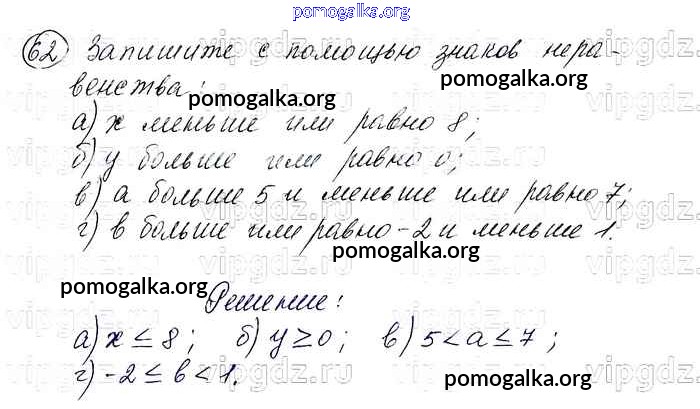 pomogalka.org
62 Запишите с помощью знаков нера-
венства:
pomogalka.org pomogalka.org
а) x меньше или равно 8;
б) y больше или равно 0;
pomogalka.org
в) a больше 5 и меньше или равно 7;
г) в больше или равно -2 и меньше 1.
pomogalka.org
pomogalka.org
Решение:
а) x ≤ 8; б) y ≥ 0; в) 5 < a ≤ 7;
г) -2 ≤ в < 1.
pomogalka.org